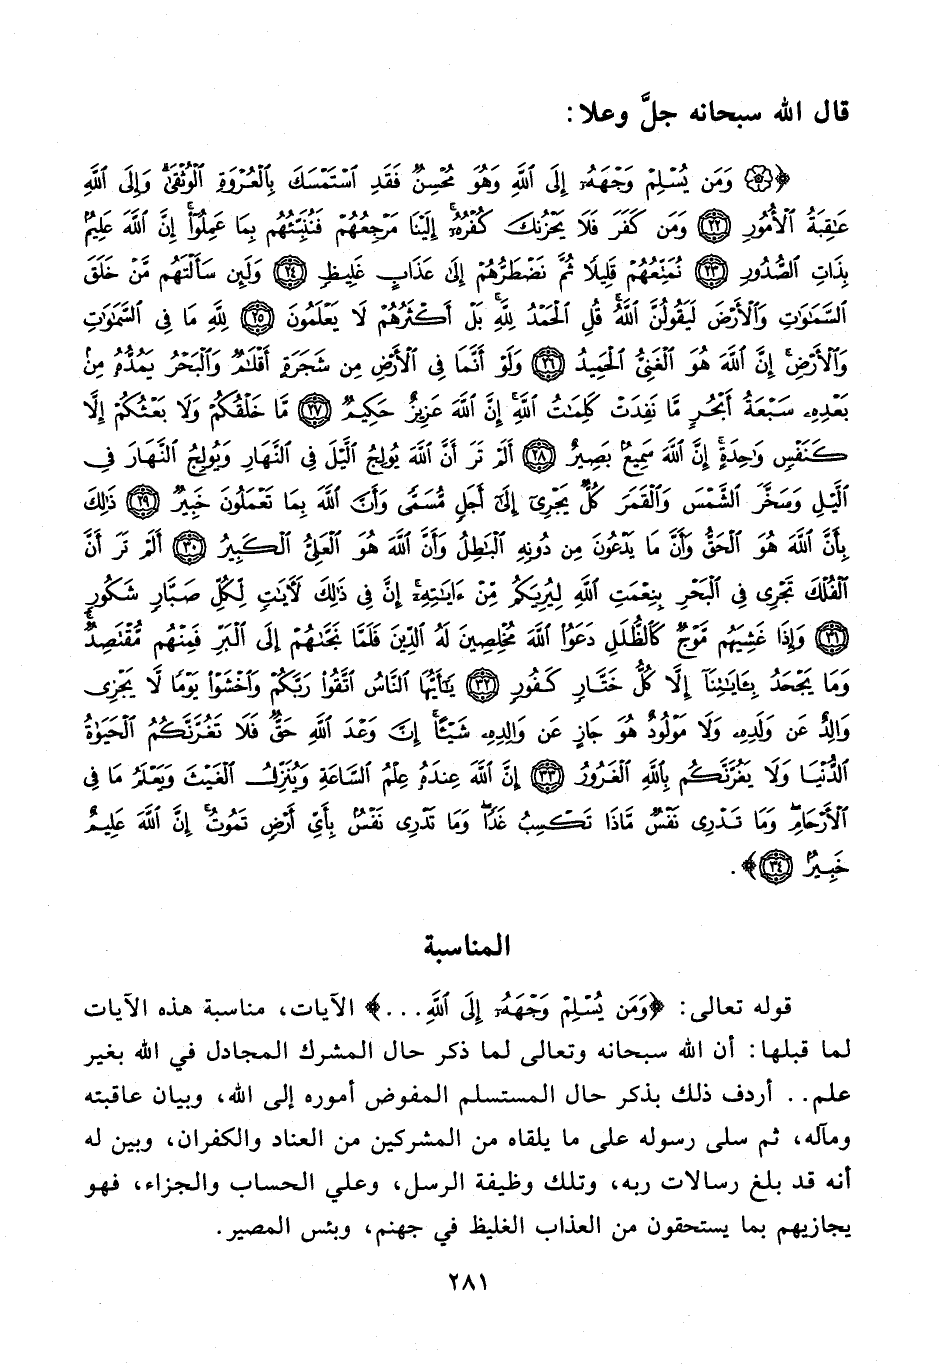 قال الله سبحانه جلَّ وعلا:
﴿۞ وَمَن يُسْلِمْ وَجْهَهُۥٓ إِلَى ٱللَّهِ وَهُوَ مُحْسِنٌ فَقَدِ ٱسْتَمْسَكَ بِٱلْعُرْوَةِ ٱلْوُثْقَىٰ ۗ وَإِلَى ٱللَّهِ
عَٰقِبَةُ ٱلْأُمُورِ ﴿٢٢﴾ وَمَن كَفَرَ فَلَا يَحْزُنكَ كُفْرُهُۥٓ ۚ إِلَيْنَا مَرْجِعُهُمْ فَنُنَبِّئُهُم بِمَا عَمِلُوٓا۟ ۚ إِنَّ ٱللَّهَ عَلِيمٌۢ
بِذَاتِ ٱلصُّدُورِ ﴿٢٣﴾ نُمَتِّعُهُمْ قَلِيلًا ثُمَّ نَضْطَرُّهُمْ إِلَىٰ عَذَابٍ غَلِيظٍ ﴿٢٤﴾ وَلَئِن سَأَلْتَهُم مَّنْ خَلَقَ
ٱلسَّمَٰوَٰتِ وَٱلْأَرْضَ لَيَقُولُنَّ ٱللَّهُ ۚ قُلِ ٱلْحَمْدُ لِلَّهِ ۚ بَلْ أَكْثَرُهُمْ لَا يَعْلَمُونَ ﴿٢٥﴾ لِلَّهِ مَا فِى ٱلسَّمَٰوَٰتِ
وَٱلْأَرْضِ ۚ إِنَّ ٱللَّهَ هُوَ ٱلْغَنِىُّ ٱلْحَمِيدُ ﴿٢٦﴾ وَلَوْ أَنَّمَا فِى ٱلْأَرْضِ مِن شَجَرَةٍ أَقْلَٰمٌ وَٱلْبَحْرُ يَمُدُّهُۥ مِنۢ
بَعْدِهِۦ سَبْعَةُ أَبْحُرٍ مَّا نَفِدَتْ كَلِمَٰتُ ٱللَّهِ ۗ إِنَّ ٱللَّهَ عَزِيزٌ حَكِيمٌ ﴿٢٧﴾ مَّا خَلْقُكُمْ وَلَا بَعْثُكُمْ إِلَّا
كَنَفْسٍ وَٰحِدَةٍ ۗ إِنَّ ٱللَّهَ سَمِيعٌۢ بَصِيرٌ ﴿٢٨﴾ أَلَمْ تَرَ أَنَّ ٱللَّهَ يُولِجُ ٱلَّيْلَ فِى ٱلنَّهَارِ وَيُولِجُ ٱلنَّهَارَ فِى
ٱلَّيْلِ وَسَخَّرَ ٱلشَّمْسَ وَٱلْقَمَرَ كُلٌّ يَجْرِىٓ إِلَىٰٓ أَجَلٍ مُّسَمًّى وَأَنَّ ٱللَّهَ بِمَا تَعْمَلُونَ خَبِيرٌ ﴿٢٩﴾ ذَٰلِكَ
بِأَنَّ ٱللَّهَ هُوَ ٱلْحَقُّ وَأَنَّ مَا يَدْعُونَ مِن دُونِهِ ٱلْبَٰطِلُ وَأَنَّ ٱللَّهَ هُوَ ٱلْعَلِىُّ ٱلْكَبِيرُ ﴿٣٠﴾ أَلَمْ تَرَ أَنَّ
ٱلْفُلْكَ تَجْرِى فِى ٱلْبَحْرِ بِنِعْمَتِ ٱللَّهِ لِيُرِيَكُم مِّنْ ءَايَٰتِهِۦٓ ۚ إِنَّ فِى ذَٰلِكَ لَءَايَٰتٍ لِّكُلِّ صَبَّارٍ شَكُورٍ
﴿٣١﴾ وَإِذَا غَشِيَهُم مَّوْجٌ كَٱلظُّلَلِ دَعَوُا۟ ٱللَّهَ مُخْلِصِينَ لَهُ ٱلدِّينَ فَلَمَّا نَجَّىٰهُمْ إِلَى ٱلْبَرِّ فَمِنْهُم مُّقْتَصِدٌ ۚ
وَمَا يَجْحَدُ بِـَٔايَٰتِنَآ إِلَّا كُلُّ خَتَّارٍ كَفُورٍ ﴿٣٢﴾ يَٰٓأَيُّهَا ٱلنَّاسُ ٱتَّقُوا۟ رَبَّكُمْ وَٱخْشَوْا۟ يَوْمًا لَّا يَجْزِى
وَالِدٌ عَن وَلَدِهِۦ وَلَا مَوْلُودٌ هُوَ جَازٍ عَن وَالِدِهِۦ شَيْـًٔا ۚ إِنَّ وَعْدَ ٱللَّهِ حَقٌّ ۖ فَلَا تَغُرَّنَّكُمُ ٱلْحَيَوٰةُ
ٱلدُّنْيَا وَلَا يَغُرَّنَّكُم بِٱللَّهِ ٱلْغَرُورُ ﴿٣٣﴾ إِنَّ ٱللَّهَ عِندَهُۥ عِلْمُ ٱلسَّاعَةِ وَيُنَزِّلُ ٱلْغَيْثَ وَيَعْلَمُ مَا فِى
ٱلْأَرْحَامِ ۖ وَمَا تَدْرِى نَفْسٌ مَّاذَا تَكْسِبُ غَدًا ۖ وَمَا تَدْرِى نَفْسٌۢ بِأَىِّ أَرْضٍ تَمُوتُ ۚ إِنَّ ٱللَّهَ عَلِيمٌ
خَبِيرٌۢ ﴿٣٤﴾﴾.
المناسبة
قوله تعالى: ﴿وَمَن يُسْلِمْ وَجْهَهُۥٓ إِلَى ٱللَّهِ...﴾ الآيات، مناسبة هذه الآيات
لما قبلها: أن الله سبحانه وتعالى لما ذكر حال المشرك المجادل في الله بغير
علم.. أردف ذلك بذكر حال المستسلم المفوض أموره إلى الله، وبيان عاقبته
ومآله، ثم سلى رسوله على ما يلقاه من المشركين من العناد والكفران، وبين له
أنه قد بلغ رسالات ربه، وتلك وظيفة الرسل، وعلي الحساب والجزاء، فهو
يجازيهم بما يستحقون من العذاب الغليظ في جهنم، وبئس المصير.
٢٨١